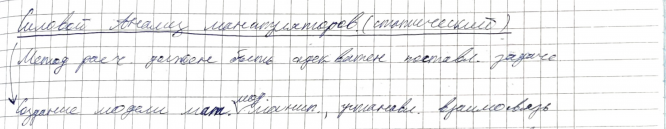 Силовой Анализ манипуляторов. (статический)
(Метод расч. должен быть адекватен поставл. задаче
Создание модели мат. мод. манип., устанавл. взаимосвязь